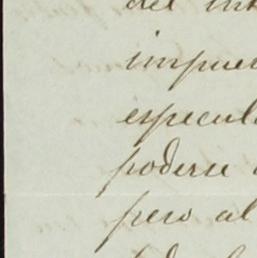 del int
impues
especul
poderse
pero al